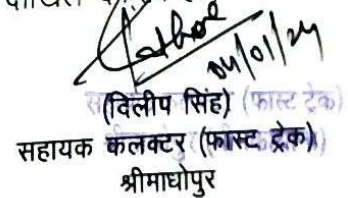 04/01/24
(दिलीप सिंह) (फास्ट ट्रेक)
सहायक कलक्टर (फास्ट ट्रेक)
श्रीमाधोपुर